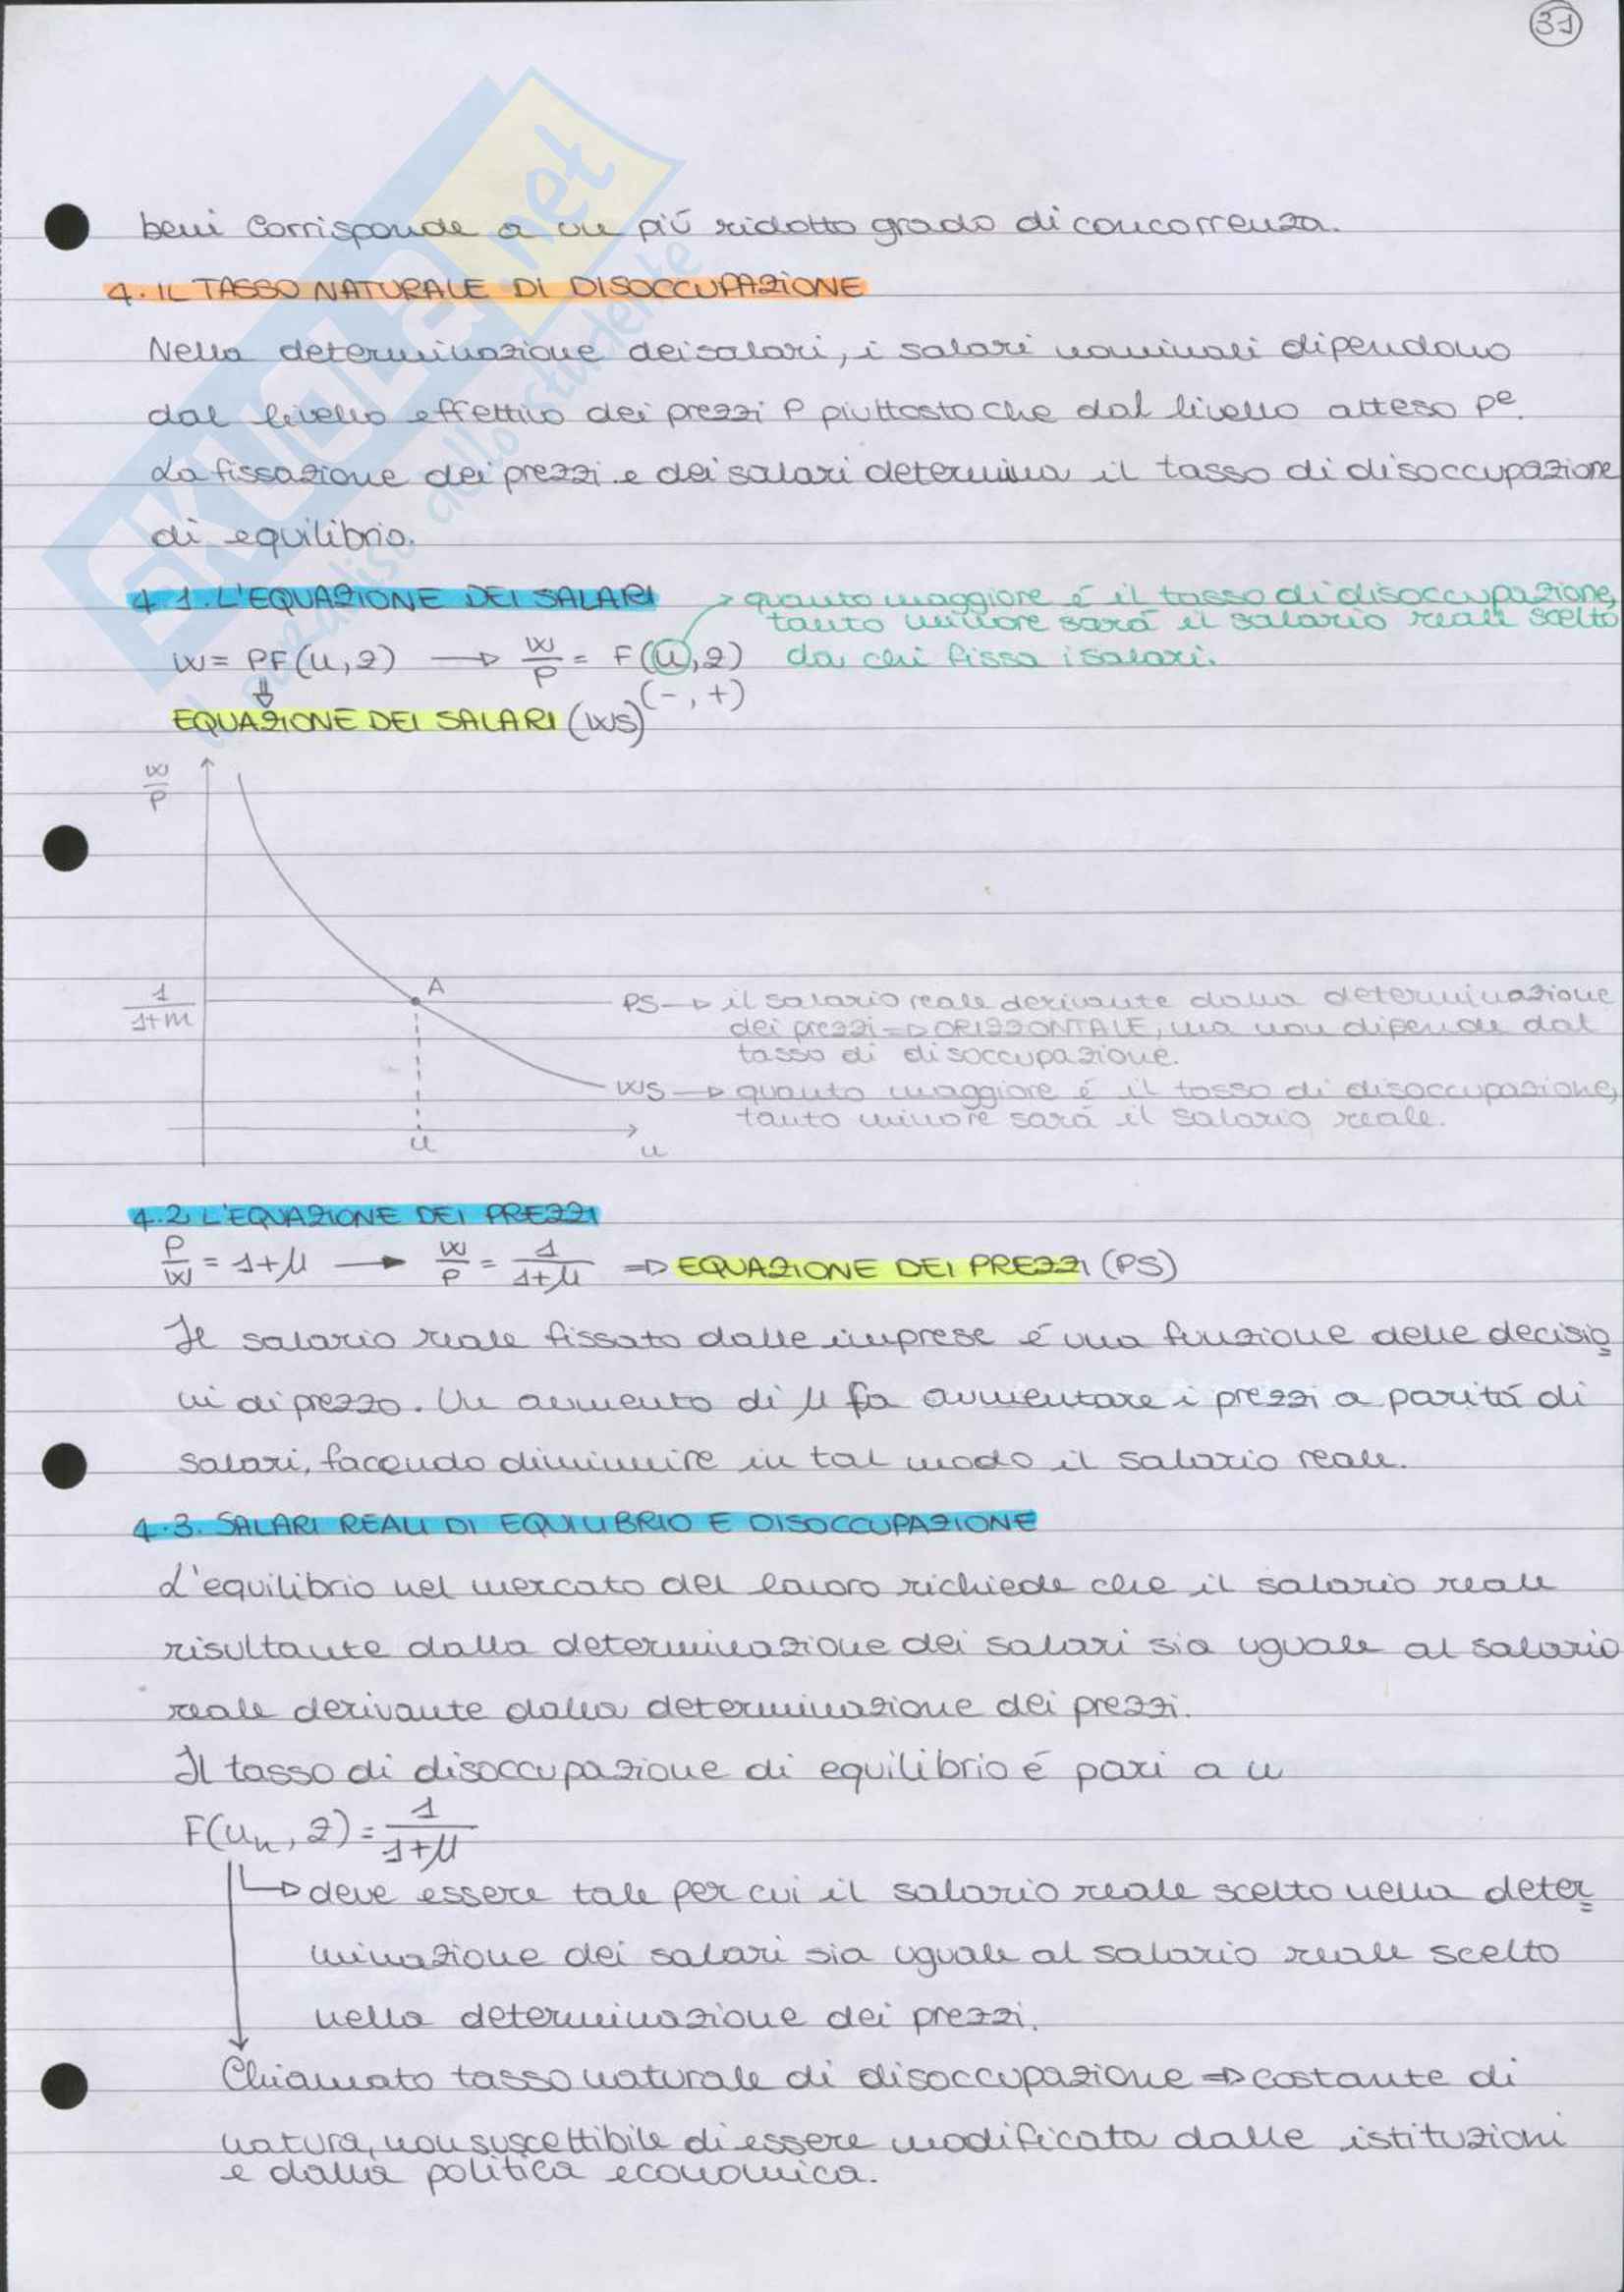 31
beni corrisponde a un più ridotto grado di concorrenza.
4. IL TASSO NATURALE DI DISOCCUPAZIONE
Nella determinazione dei salari, i salari nominali dipendono
dal livello effettivo dei prezzi P piuttosto che dal livello atteso Pe.
La fissazione dei prezzi e dei salari determina il tasso di disoccupazione
di equilibrio.
4.1. L'EQUAZIONE DEI SALARI
→ quanto maggiore é il tasso di disoccupazione,
tanto minore sará il salario reale scelto
W = PF(u, z) → W/P = F(u, z) da chi fissa i salari.
(-, +)
EQUAZIONE DEI SALARI (WS)
W/P
A
1/1+m
PS → il salario reale derivante dalla determinazione
dei prezzi ⇒ ORIZZONTALE, ma non dipende dal
tasso di disoccupazione.
WS → quanto maggiore é il tasso di disoccupazione,
tanto minore sará il salario reale.
u
u
4.2 L'EQUAZIONE DEI PREZZI
P/W = 1+μ → W/P = 1/1+μ ⇒ EQUAZIONE DEI PREZZI (PS)
Il salario reale fissato dalle imprese é una funzione delle decisio
ni di prezzo. Un aumento di μ fa aumentare i prezzi a paritá di
salari, facendo diminuire in tal modo il salario reale.
4.3. SALARI REALI DI EQUILIBRIO E DISOCCUPAZIONE
L'equilibrio nel mercato del lavoro richiede che il salario reale
risultante dalla determinazione dei salari sia uguale al salario
reale derivante dalla determinazione dei prezzi.
Il tasso di disoccupazione di equilibrio é pari a u
F(un, z) = 1/1+μ
→ deve essere tale per cui il salario reale scelto nella deter
minazione dei salari sia uguale al salario reale scelto
nella determinazione dei prezzi.
Chiamato tasso naturale di disoccupazione ⇒ costante di
natura, non suscettibile di essere modificata dalle istituzioni
e dalla politica economica.
SKUOLA.net
il paradiso dello studente